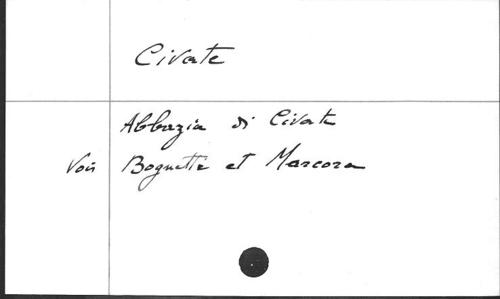 Civate
Abbazia di Civate
Voir Bognetti et Marcora